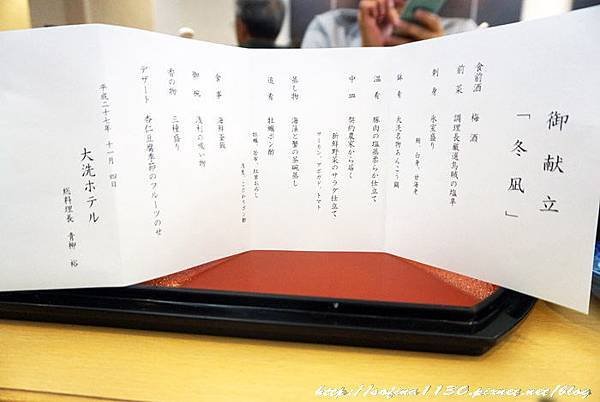 御献立
「冬凪」
食前酒 梅酒
前菜 調理長厳選烏賊の塩辛
刺身 氷室盛り
鮪、白身、甘海老
鉢肴 大洗名物あんこう鍋
温肴 豚肉の塩蒸柔らか仕立て
中皿 契約農家から届く
新鮮野菜のサラダ仕立て
サーモン、アボガド、トマト
蒸し物 海藻と蟹の茶碗蒸し
追肴 牡蠣ポン酢
食事 海鮮釜飯
御椀 浅利の吸い物
香の物 三種盛り
デザート 杏仁豆腐季節のフルーツのせ
平成二十七年 十一月 四日
大洗ホテル
総料理長 青柳 裕
http://sofina1130.pixnet.net/blog